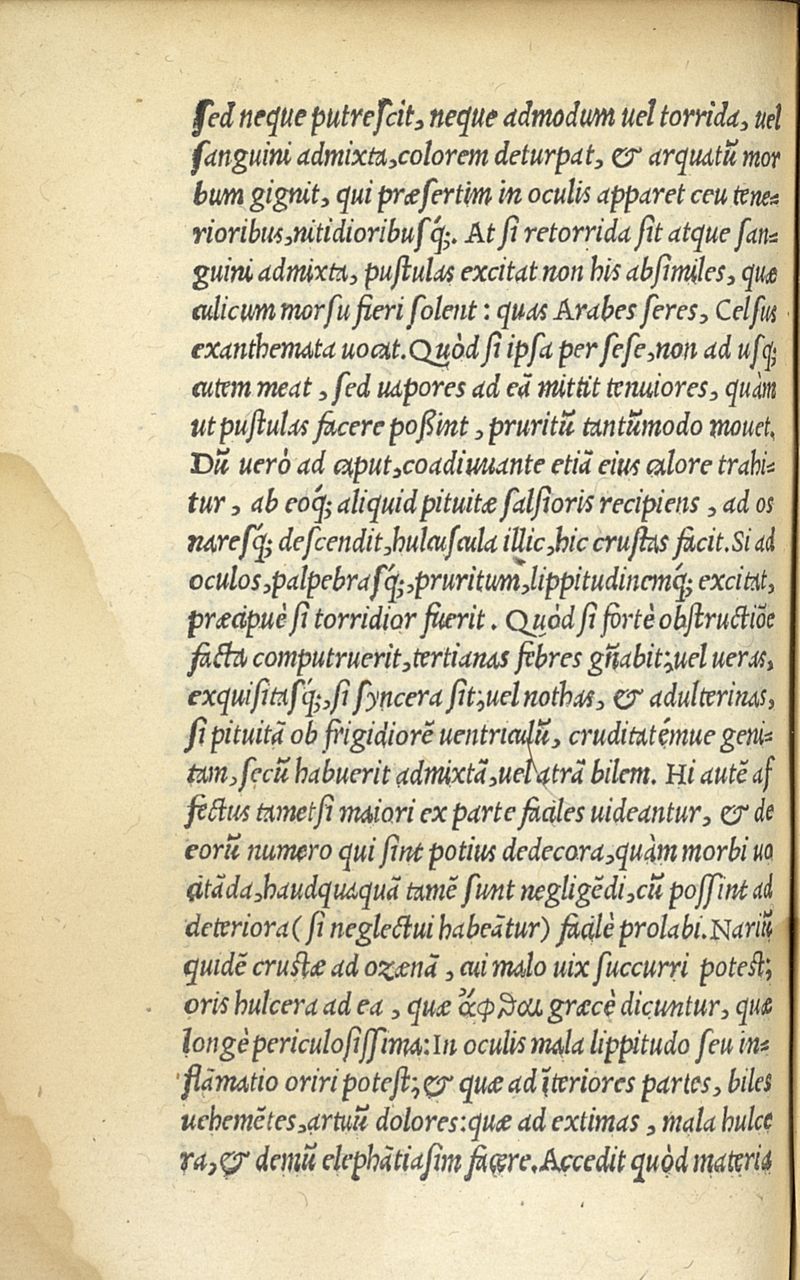 sed neque putrescit, neque admodum uel torrida, uel
sanguini admixta, colorem deturpat, & arquatũ mor
bum gignit, qui præsertim in oculis apparet ceu tene-
rioribus, nitidioribusq́;. At si retorrida sit atque san-
guini admixta, pustulas excitat non his absimiles, quæ
culicum morsu fieri solent: quas Arabes seres, Celsus
exanthemata uocat. Quòd si ipsa per sese, non ad usq;
cutem meat, sed uapores ad eã mittit tenuiores, quàm
ut pustulas facere poßint, pruritũ tantũmodo mouet.
Dũ uerò ad caput, coadiuuante etiã eius calore trahi-
tur, ab eoq́; aliquid pituitæ salsioris recipiens, ad os
naresq́; descendit, hulcuscula illic, hic crustas facit. Si ad
oculos, palpebrasq́;, pruritum, lippitudinemq́; excitat,
præcipuè si torridior fuerit. Quòd si fortè obstructiõe
facta computruerit, tertianas febres gñabit; uel ueras,
exquisitasq́;, si syncera sit; uel nothas, & adulterinas,
si pituitã ob frigidiorẽ uentriculũ, cruditatémue geni-
tam, secũ habuerit admixtã, uel atrã bilem. Hi autẽ af
fectus tametsi maiori ex parte faciles uideantur, & de
eorũ numero qui sint potius dedecora, quàm morbi uo
citãda, haudquaquã tamẽ sunt negligẽdi, cũ possint ad
deteriora (si neglectui habeãtur) facilè prolabi. Nariũ
quidẽ crustæ ad ozænã, cui malo uix succurri potest;
oris hulcera ad ea, quæ ἄφθαι græcè dicuntur, quæ
longè periculosissima: In oculis mala lippitudo seu in-
flãmatio oriri potest; & quæ ad ĩteriores partes, biles
uehemẽtes, artuũ dolores: quæ ad extimas, mala hulce
ra, & demũ elephãtiasim facere. Accedit quòd materia